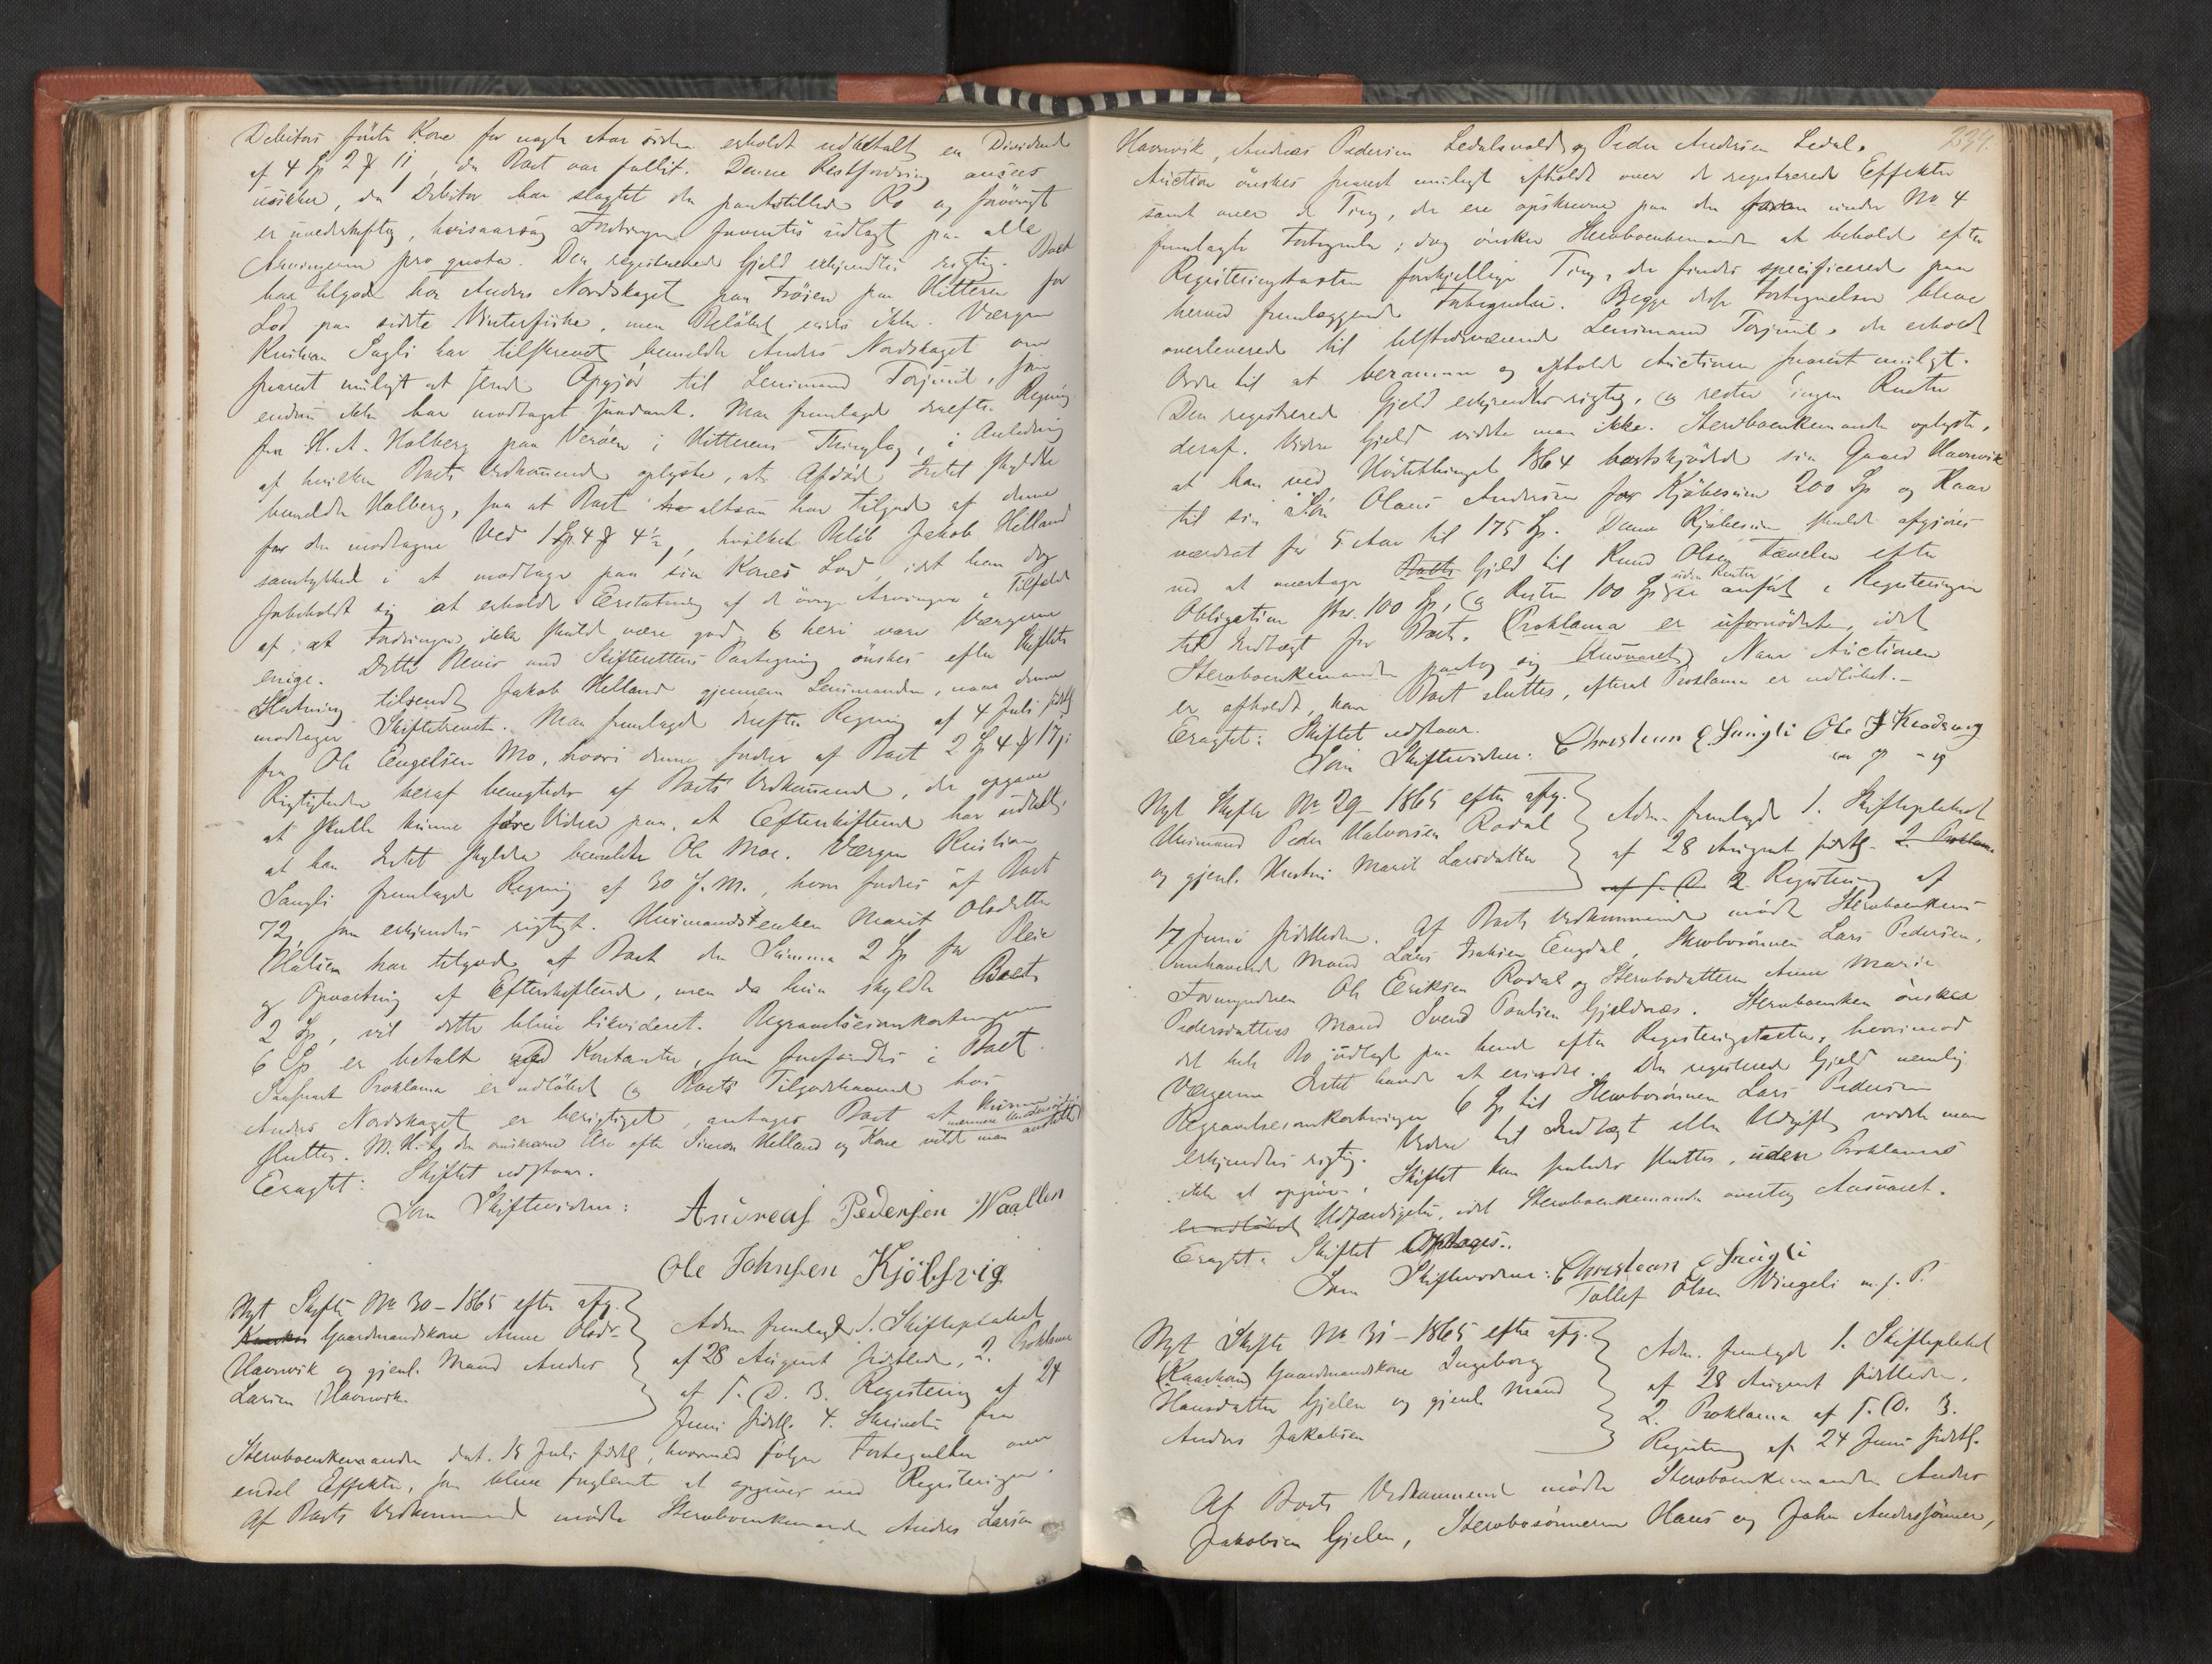 Debitors første Kone for nogle Aar siden erholdt udbetalt en Dividende
af 4 Sp 2 ₰ 11, da Boet var fallit. Denne Restfordring ansees
usikker, da Debitor har slagtet den pantstillede Ko og forøvrigt
er uvederheftig, hvisaarsag Fordringen udlagt paa alle
Arvingerne pro quota. Den registrerede Gjeld erkjendtes rigtig. Boet
har tilgode hos Anders Nordskaget paa Frøien paa Hitteren for
Lod paa sidste Vinterfiske, men Beløbet vides ikke. Værgen
Kristian Sugli har tilskrevet bemeldte Anders Nordskaget om
snarest muligt at sende Opgjør til Lensmand Forsmit, som
endnu ikke har modtaget saadant. Man fremlagde derefter Regning
fra H. A. Holberg paa Verøen i Hitterens Thinglag, i Anledning
af hvilken Boets Vedkommende oplyste, at Afdøde Intet skyldte
bemeldte Holberg, saa at Boet altsaa har tilgode af denne
for den modtagne Ved 1 Sp 4 ₰ 4½, hvilket Beløb Jakob Helland
samtykkede i at modtage paa sin Kones Lod, idet han dog
forbeholdt sig at erholde Erstatning af de øvrige Arvinger i Tilfælde
af, at Fordringen ikke skulde være god, & heri vare Værgerne
enige. Dette Brev med Skifterettens Paategning ønskes efter Skiftets
Slutning tilsendt Jakob Helland gjennem Lensmanden, naar denne
modtager Skiftebrevet. Man fremlagde derefter Regning af 4 Juli sidstl.
fra Ole Engelsen Mo, hvori denne fordrer af Boet 2 Sp 4 ₰ 17 s:
Rigtigheden heraf benegtedes af Boets Vedkommende, der opgave
at skulle kunne føre Vidner paa, at Efterskiftende har udtalt,
at han Intet skyldte bemeldte Ole Moe. Værgen Kristian
Sangli fremlagde Regning af 30 f. M., hvori fordres af Boet
72, som erkjendtes rigtigt. Huusmandsenken Marit Olsdatter
Halsen har tilgode af Boet den Summa 2 Sp for Pleie
og Opvartning af Efterskiftende, men da hun skylder Boet
2 Sp, vil dette blive likvideret. Begravelsesomkostningerne
6 Sp er betalt med Kontanter, som forefandtes i Boet.
Saasnart Proklama er udløbet & Boets Tilgodehavende hos
Anders Nordskaget er berigtiget, antages Boet at kunne
sluttes. M. H. t. den omskrevne Arv efter Simon Helland og Kone vilde man nærmere anstille
Eragtet: Skiftet udstaar.
Som Skiftevidner:
Andreas Pedersen Waallen
Ole Johnsen Kjølsvig
Nyt Skifte No 30 – 1865 efter afg.
Gaardmandskone Anne Olsdr
Havnvik og gjenl. Mand Anders
Larsen Havnvik.
Adm. fremlagde 1. Skifteplakat
af 28 August sidstleden, 2. Proklama
af s. D. 3. Registering af 24
Juni sidstl. 4. Skrivelse fra
Stervboenkemanden dat. 15 Juli sidstl., hvormed følger Fortegnelse over
endel Effekter, som bleve forglemte at opgives ved Registeringen.
Af Boets Vedkommende mødte Stervboenkemanden Anders Larsen
234.
Havnvik, Andreas Pedersen Ledalsvold og Peder Andersen Ledal.
Auction ønskes snarest muligt afholdt over de registrerede Effekter
samt over de Ting, der ere opskrevne paa den under No 4
fremlagte Fortegnelse; dog ønsker Stervboenkemanden at beholde efter
Registeringstaxten forskjellige Ting, der findes specificerede paa
herved fremlæggende Fortegnelse. Begge disse Fortegnelser bleve
overleverede til tilstedeværende Lensmand Forsmit, der erholdt
Ordre til at berømme og afholde Auctionen snarest muligt.
Den registrerede Gjeld erkjendtes rigtig, & rester ingen Renter
deraf. Videre Gjeld vidste man ikke. Stervboenkemanden oplyste,
at han ved Høstthinget 1864 bortskjødede sin Gaard Havnvik
til sin Søn Olaus Andersen for Kjøbesum 200 Sp og Kaar
værdsat for 5 Aar til 175 Sp. Denne Kjøbesum skulde afgjøres
ved at overtage Boets Gjeld til Knud Olsen Tævelen efter
Obligation stor 100 Sp, & Resten 100 Sp uden Renter er anført i Registeringen
til Indtægt for Boet. Proklama er ufornødent, idet
Stervboenkemanden paatog sig Ansvaret. Naar Auctionen
er afholdt, kan Boet sluttes, efterat Proklama er udløbet.–
Eragtet: Skiftet udstaar.
Som Skiftevidner: Christian E Sangli Ole J Kredsvig
Nyt Skifte No 29 – 1865 efter afg.
Huusmand Peder Halvorsen Rodal
og gjenl. Hustru Marit Larsdatter
Adm. fremlagde 1. Skifteplakat
af 28 August sidstl. 2. Proklama
af s. D. 2. Registering af
17 Juni sidstleden. Af Boets Vedkommende mødte Stervboenkens
nuhavende Mand Lars Isaksen Engdal, Stervbosønnen Lars Pedersen,
Formynderen Ole Eriksen Rodal og Stervbodatteren Anne Marie
Pedersdatters Mand Svend Paulsen Gjeldnæs. Stervboenken ønsker
det hele Bo udlagt paa hende efter Registeringstaxten, hvorimod
Værgerne Intet havde at erindre. Den registrerede Gjeld nemlig
Begravelsesomkostninger 6 Sp til Stervbosønnen Lars Pedersen
erkjendtes rigtig. Videre til Indtægt eller Udgift vidste man
ikke at opgive. Skiftet kan saaledes sluttes, uden Proklamas
er udløbet Udfærdigelse, idet Stervboenkemanden overtog Ansvaret.
Eragtet: Skiftet Optages..
Som Skiftevidner: Christian E Sangli
Tollef Olsen Wingeli m. f. P.
Nyt Skifte No 31 – 1865 efter afg.
(Kaarkone) Gaardmandskone Ingeborg
Hansdatter Gjelen og gjenl. Mand
Anders Jakobsen
Adm. fremlagde 1. Skifteplakat
af 28 August sidstleden.
2. Proklama af s. D. 3.
Registering af 24 Juni sidstl.
Af Boets Vedkommende mødte Stervboenkemanden Anders
Jakobsen Gjelen, Stervbosønnerne Hans og John Anderssønner,